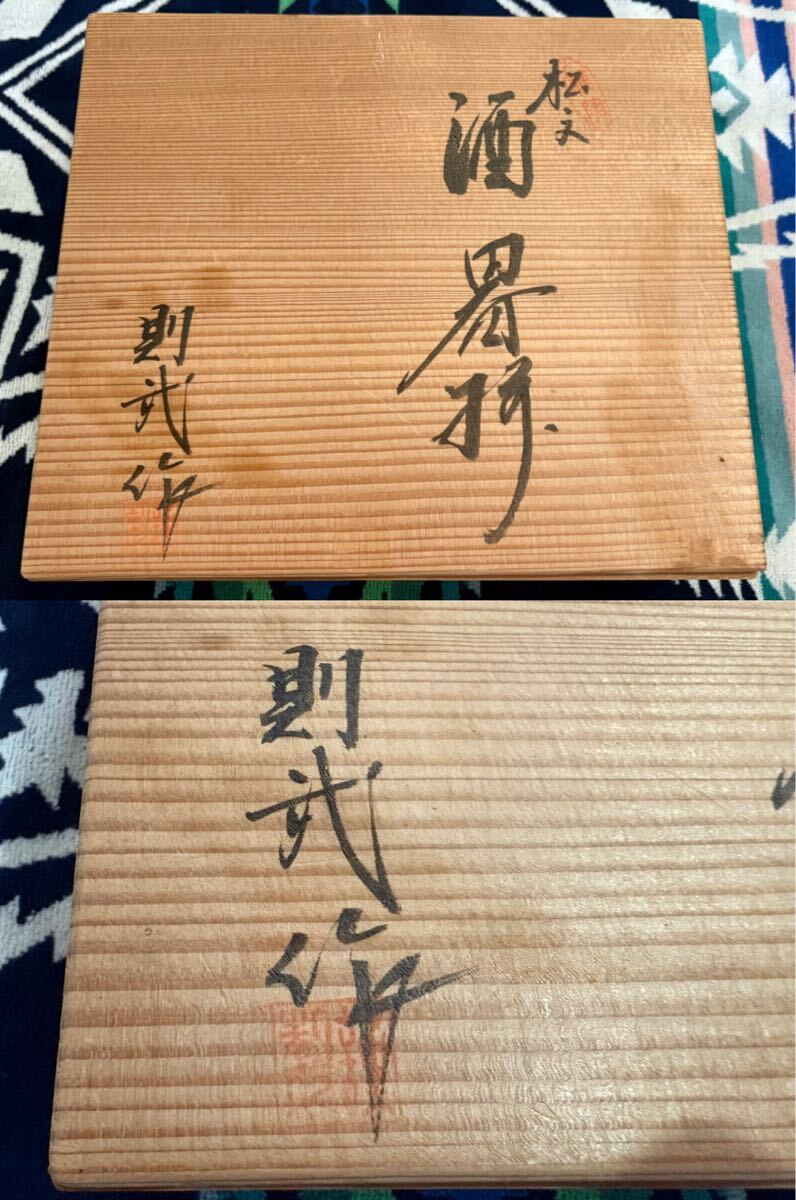 松文
酒器揃
則武作
則武作